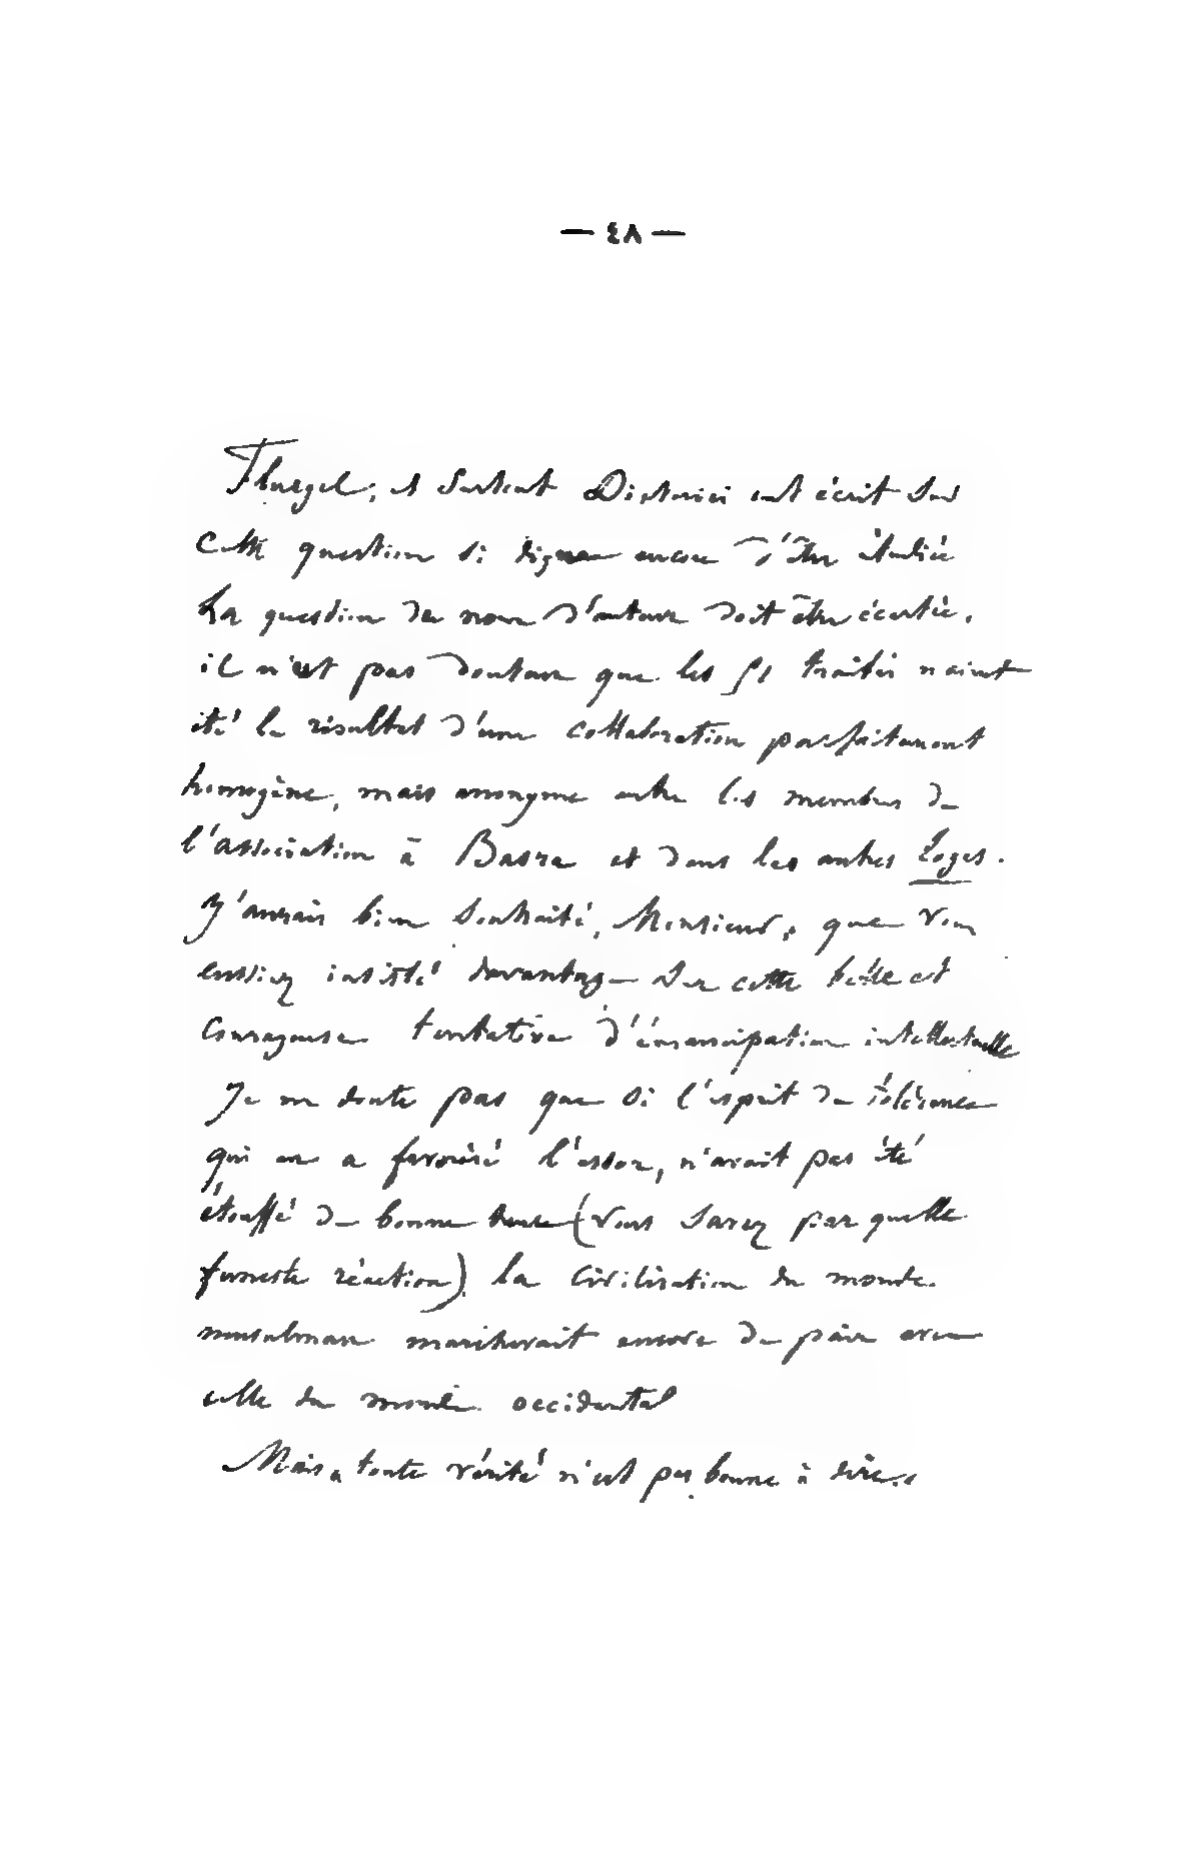 — ٤٨ —
Fluegel, et surtout Dieterici ont écrit sur
cette question si digne encore d'être étudiée
La question du nom d'auteur doit être écartée.
il n'est pas douteux que les 51 traités n'aient
été le résultat d'une collaboration parfaitement
homogène, mais anonyme entre les membres de
l'association à Basra et dans les autres Loges.
J'aurais bien souhaité, Monsieur, que vous
eussiez insisté davantage sur cette belle et
courageuse tentative d'émancipation intellectuelle
Je ne doute pas que si l'esprit de tolérance
qui en a favorisé l'essor, n'avait pas été
étouffé de bonne heure (vous savez par quelle
funeste réaction) la civilisation du monde
musulman marcherait encore de pair avec
celle du monde occidental
Mais toute vérité n'est pas bonne à dire..